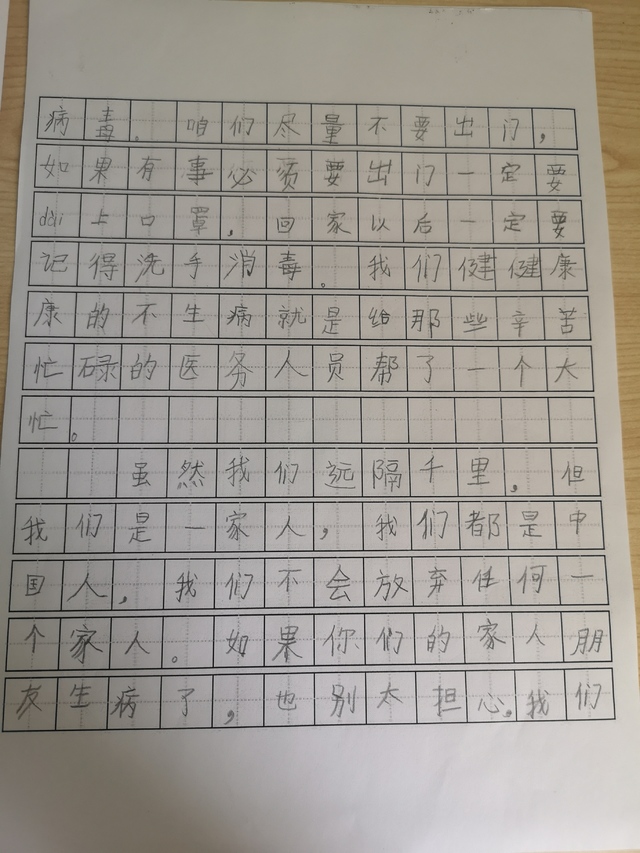 病毒。咱们尽量不要出门，
如果有事必须要出门一定要
dài上口罩，回家以后一定要
记得洗手消毒。我们健健康
康的不生病就是给那些辛苦
忙碌的医务人员帮了一个大
忙。
虽然我们远隔千里，但
我们是一家人，我们都是中
国人，我们不会放弃任何一
个家人。如果你们的家人朋
友生病了，也别太担心，我们